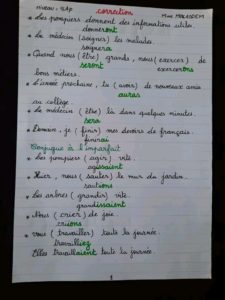 niveau : 5AP correction Mme MALAADEM
• Les pompiers donnent des informations utiles.
donneront
• Le médecin (soigner) les malades.
soignera
• Quand nous (être) grands, nous (exercer) de
serons exercerons
bons métiers.
• L'année prochaine, tu (avoir) de nouveaux amis
auras
au collège.
• Le médecin (être) là dans quelques minutes.
sera
• Demain, je (finir) mes devoirs de français.
finirai
Conjugue à l'imparfait
• Les pompiers (agir) vite.
agissaient
• Hier, nous (sauter) le mur du jardin.
sautions
• Les arbres (grandir) vite.
grandissaient
• Nous (crier) de joie.
criions
• vous (travailler) toute la journée.
travailliez
Elles travaillaient toute la journée.
1